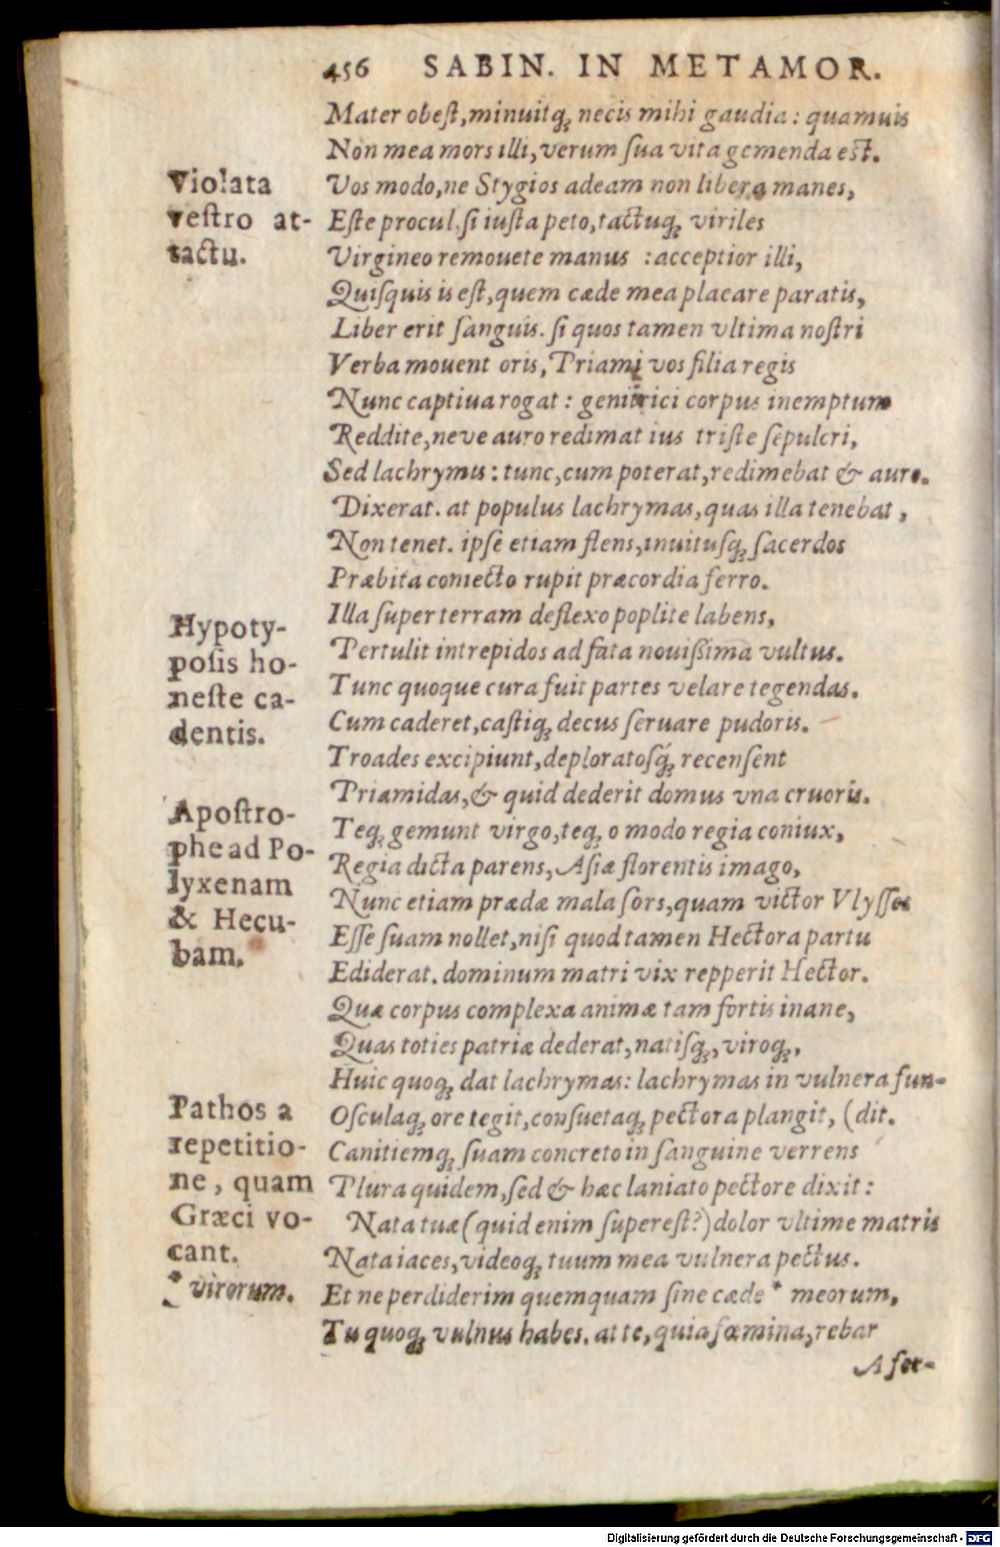 456 SABIN. IN METAMOR.
Mater obeſt, minuitq́; necis mihi gaudia: quamuis
Non mea mors illi, verum ſua vita gemenda eſt.
Vos modo, ne Stygios adeam non libera manes,
Eſte procul, ſi iuſta peto, tactuq́; viriles
Virgineo remouete manus : acceptior illi,
Quiſquis is eſt, quem cæde mea placare paratis,
Liber erit ſanguis. ſi quos tamen vltima noſtri
Verba mouent oris, Priami vos filia regis
Nunc captiua rogat: genitrici corpus inemptum
Reddite, neve auro redimat ius triſte ſepulcri,
Sed lachrymis: tunc, cum poterat, redimebat & auro.
Dixerat. at populus lachrymas, quas illa tenebat,
Non tenet. ipſe etiam flens, inuituſq́; ſacerdos
Præbita coniecto rupit præcordia ferro.
Illa ſuper terram deflexo poplite labens,
Pertulit intrepidos ad fata nouißima vultus.
Tunc quoque cura fuit partes velare tegendas.
Cum caderet, caſtiq́; decus ſeruare pudoris.
Troades excipiunt, deploratoſq́; recenſent
Priamidas, & quid dederit domus vna cruoris.
Teq́; gemunt virgo, teq́; o modo regia coniux,
Regia dicta parens, Aſiæ florentis imago,
Nunc etiam prædæ mala ſors, quam victor Vlyſſes
Eſſe ſuam nollet, niſi quod tamen Hectora partu
Ediderat. dominum matri vix repperit Hector.
Quæ corpus complexa animæ tam fortis inane,
Quas toties patriæ dederat, natiſq́;, viroq́;,
Huic quoq́; dat lachrymas: lachrymas in vulnera fun-
Oſculaq́; ore tegit, conſuetaq́; pectora plangit, (dit.
Canitiemq́; ſuam concreto in ſanguine verrens
Plura quidem, ſed & hæc laniato pectore dixit:
Nata tuæ (quid enim ſupereſt?) dolor vltime matris
Nata iaces, videoq́; tuum mea vulnera pectus.
Et ne perdiderim quemquam ſine cæde * meorum,
Tu quoq́; vulnus habes. at te, quia fœmina, rebar
A fer-
Violata
veſtro at-
tactu.
Hypoty-
poſis ho-
neſte ca-
dentis.
Apoſtro-
phe ad Po-
lyxenam
& Hecu-
bam.
Pathos a
repetitio-
ne, quam
Græci vo-
cant.
* virorum.
Digitalisierung gefördert durch die Deutsche Forschungsgemeinschaft - DFG